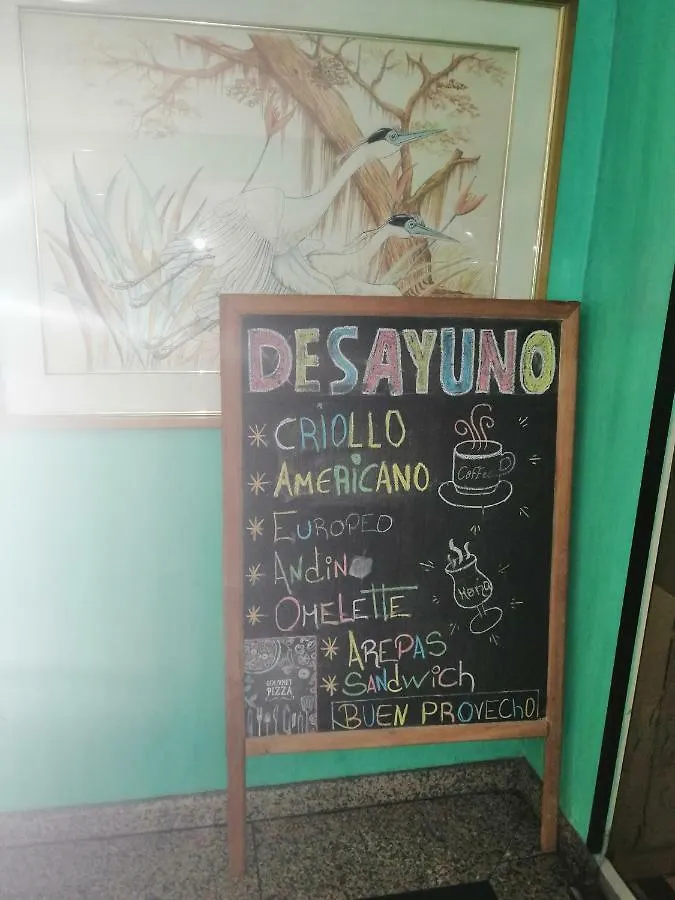 DESAYUNO
* CRIOLLO
* AMERICANO
Coffee
* EUROPEO
* ANdiNO
* OMELETTE
* AREPAS
* SANdwich
GOURMET
PIZZA
BUEN PROVEChO